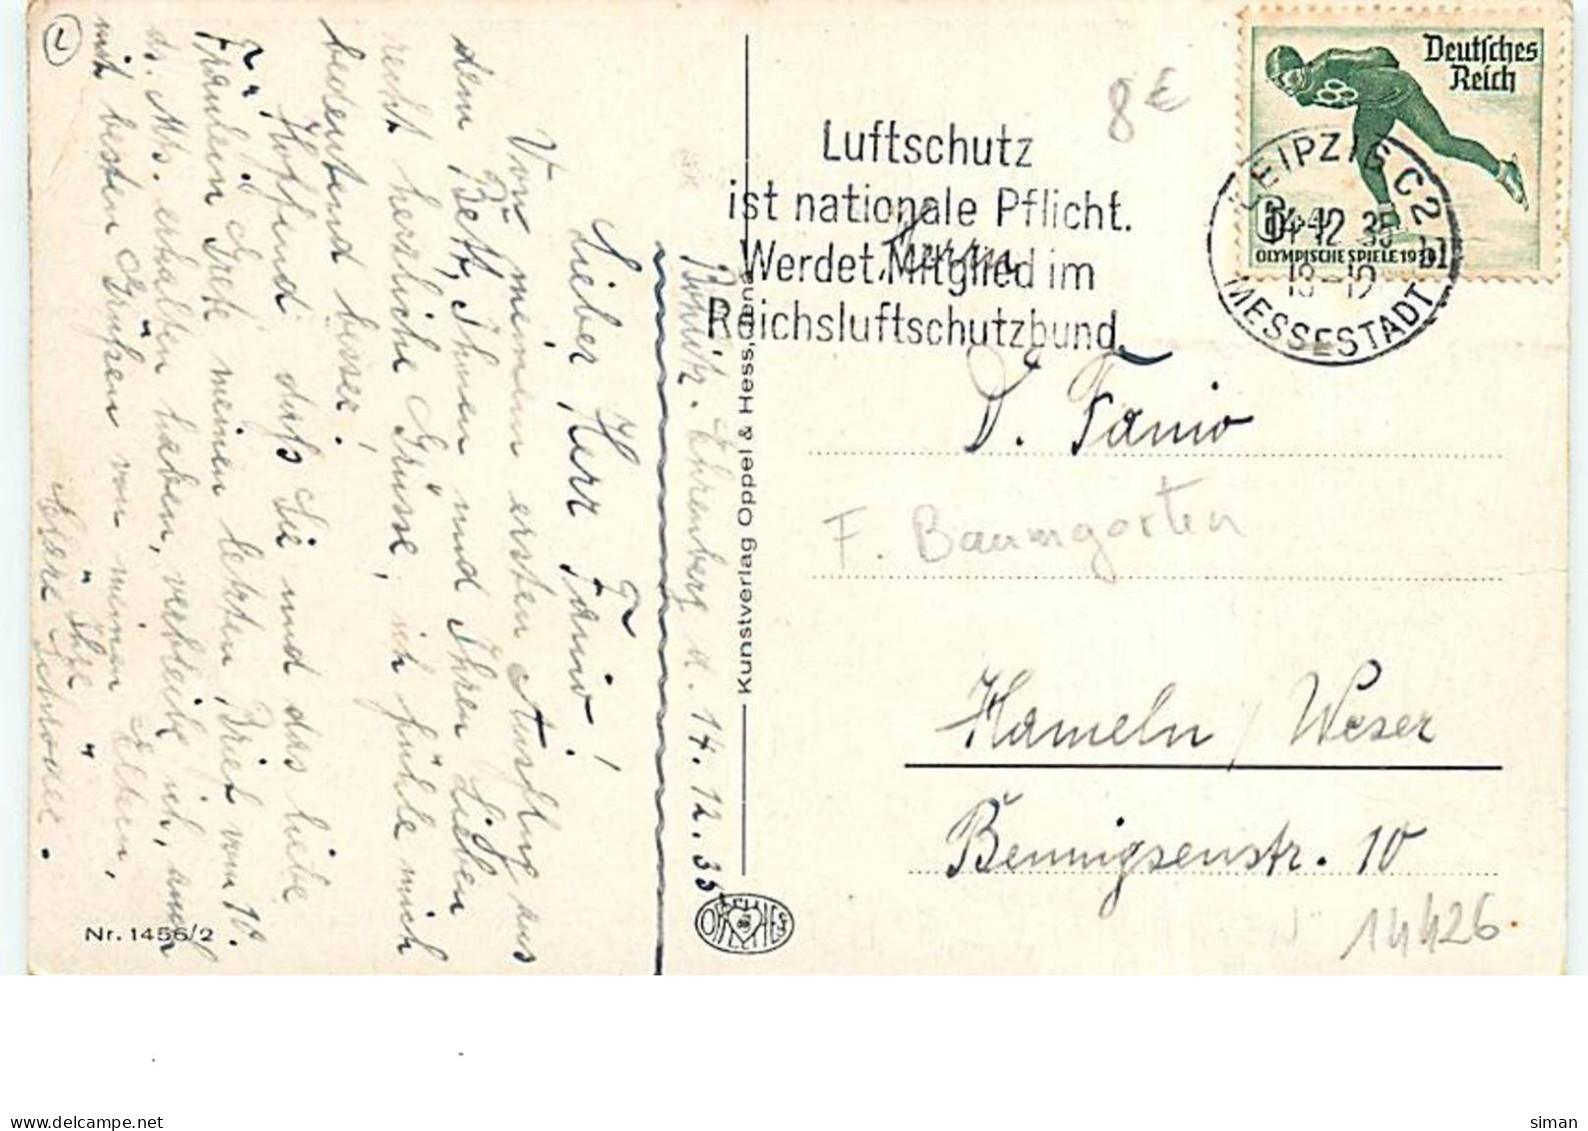 L
Böhlitz-Ehrenberg d. 14.12.35
Lieber Herr Fanio!
Von meinem ersten Ausflug aus
dem Bett, Ihnen und Ihren Lieben
recht herzliche Grüsse, ich fühle mich
bedeutend besser!
Hoffend, daß Sie und das liebe
Fräulein Grete meinen letzten Brief vom 10.
ds. Mts. erhalten haben, verbleibe ich, auch
mit besten Grüßen von meinen Eltern,
Ihre
Schroeder.
Nr. 1456/2
Kunstverlag Oppel & Hess, Jena
OPPEL HESS
Luftschutz
ist nationale Pflicht.
Werdet Mitglied im
Reichsluftschutzbund.
8€
Deutsches
Reich
6+4
OLYMPISCHE SPIELE 1936
LEIPZIG C2
14 12 35
18-19
bl
MESSESTADT
Herrn
D. Fanio
F. Baumgarten
Hameln / Weser
Bennigsenstr. 10
14426
delcampe.net
siman